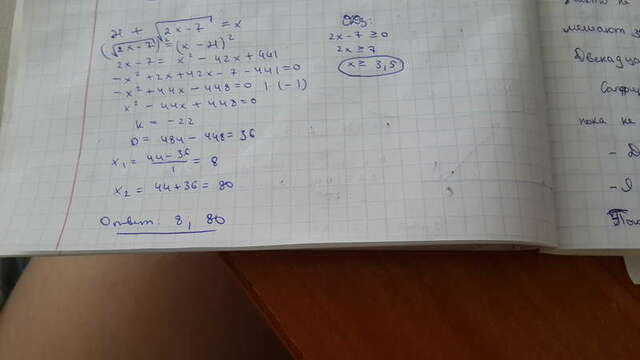 21 + √2x - 7 = x
(√2x - 7)² = (x - 21)²
2x - 7 = x² - 42x + 441
-x² + 2x + 42x - 7 - 441 = 0
-x² + 44x - 448 = 0 | (-1)
x² - 44x + 448 = 0
k = -22
D = 484 - 448 = 36
x₁ = 44 - 36 / 1 = 8
x₂ = 44 + 36 = 80
Ответ: 8, 80
ОДЗ:
2x - 7 ≥ 0
2x ≥ 7
x ≥ 3,5